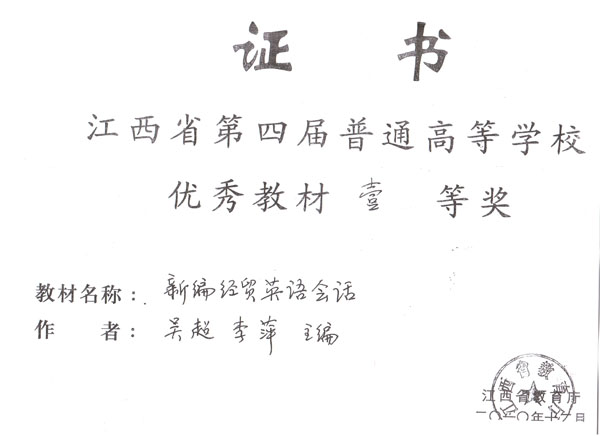 证 书
江西省第四届普通高等学校
优秀教材 壹 等奖
教材名称： 新编经贸英语会话
作 者： 吴超 李萍 主编
江西省教育厅
江西省教育厅
二〇一〇年十月